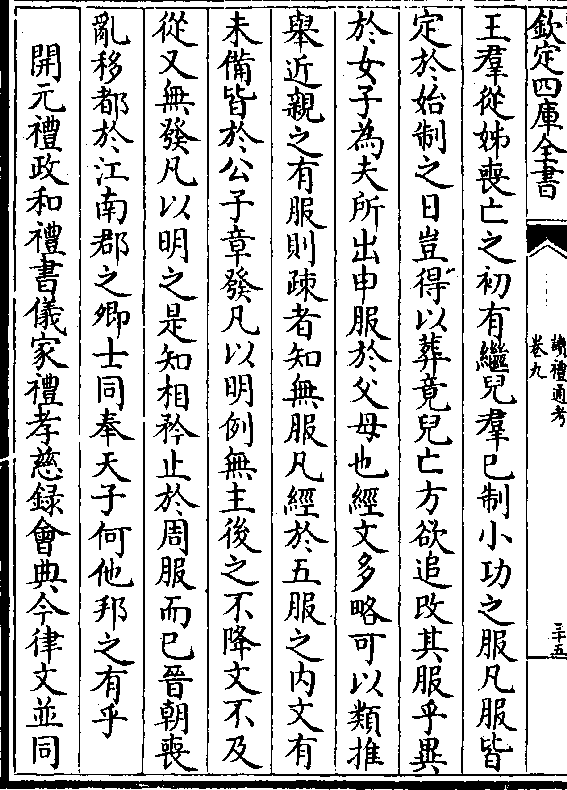 欽定四庫全書
讀禮通考
卷九
三十五
王羣從姊喪亡之初有繼兒羣已制小功之服凡服皆
定於始制之日豈得以葬竟兒亡方欲追改其服乎異
於女子為夫所出申服於父母也經文多略可以類推
舉近親之有服則疎者知無服凡經於五服之内文有
未備皆於公子章發凡以明例無主後之不降文不及
從又無發凡以明之是知相矜止於周服而已晉朝喪
亂移都於江南郡之卿士同奉天子何他邦之有乎
開元禮政和禮書儀家禮孝慈録會典今律文並同